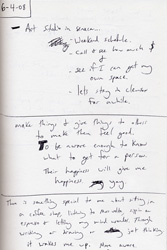 6-4-08
- Art Studio in Seneca.
- Weekend schedule.
- Call & see how much $
&
- see if I can get my
own space.
- lets stay in Clemson
for awhile.
make things & give things to others
to make them feel good.
To be aware enough to know
what to get for a person
Their happiness will give me
happiness.
There is something special to me about sitting in
a coffee shop, listening to music, sippin on
espresso & letting my mind wander through
writing or drawing or just thinking
it wakes me up. More aware